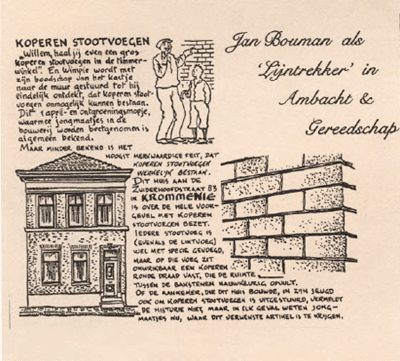 KOPEREN STOOTVOEGEN
„WILLEM, HAAL JIJ EVEN EEN GROS
KOPEREN STOOTVOEGEN IN DE TIMMER-
WINKEL". EN WIMPIE WORDT MET
ZIJN BOODSCHAP VAN HET KASTJE
NAAR DE MUUR GESTUURD TOT HIJ
EINDELIJK ONTDEKT, DAT KOPEREN STOOT-
VOEGEN ONMOGELIJK KUNNEN BESTAAN.
DIT 1 APRIL- EN ONTGROENINGSMOPJE,
WAARMEE JONGMAATJES IN DE
BOUWERIJ WORDEN BEETGENOMEN IS
ALGEMEEN BEKEND.
MAAR MINDER BEKEND IS HET
HOOGST MERKWAARDIGE FEIT, DAT
KOPEREN STOOTVOEGEN
WERKELIJK BESTAAN.
DIT HUIS AAN DE
ZUIDERHOOFDSTRAAT 83
IN KROMMENIE
IS OVER DE HELE VOOR-
GEVEL MET KOPEREN
STOOTVOEGEN BEZET.
IEDERE STOOTVOEG IS
(EVENALS DE LINTVOEG)
WEL MET SPECIE GEVOEGD,
MAAR OP DIE VOEG ZIT
ONWRIKBAAR EEN KOPEREN
RONDE DRAAD VAST, DIE DE RUIMTE
TUSSEN DE BAKSTENEN NAUWKEURIG OPVULT.
OF DE AANNEMER, DIE DIT HUIS BOUWDE, IN ZIJN JEUGD
OOK OM KOPEREN STOOTVOEGEN IS UITGESTUURD, VERMELDT
DE HISTORIE NIET, MAAR IN ELK GEVAL WETEN JONG-
MAATJES NU, WAAR DIT VERWENSTE ARTIKEL IS TE KRIJGEN.
Jan Bouman als
'Lijntrekker' in
Ambacht &
Gereedschap